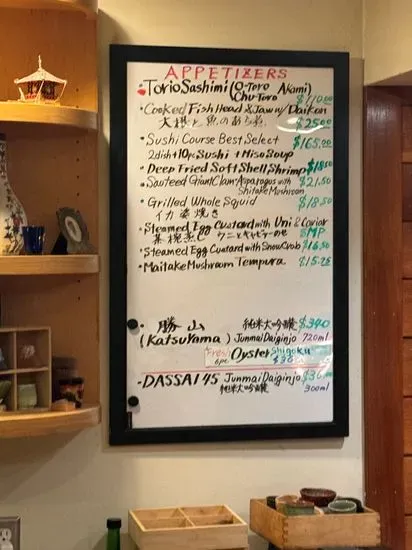 APPETIZERS
Torio Sashimi (O-Toro Akami)
Chu-Toro $110.00
・Cooked Fish Head & Jaw w/ Daikon
大根と魚のあら煮 $25.00
・Sushi Course Best Select $165.00
2dish+10pc Sushi + Miso Soup
・Deep Fried Soft Shell Shrimp $18.50
・Sauteed Giant Clam Asparagus with $21.50
Shitake Mushroom
・Grilled Whole Squid $18.50
イカ姿焼き
・Steamed Egg Custard with Uni & Caviar
茶椀蒸し ウニとキャビアーのせ $MP
・Steamed Egg Custard with Snow Crab $16.50
・Maitake Mushroom Tempura $15.25
・勝山 純米大吟醸 $340
(KatsuYama) Junmai Daiginjo 720ml
Fresh Oyster Shigoku
6pc $36
・DASSAI 45 Junmai Daiginjo
純米大吟醸 300ml